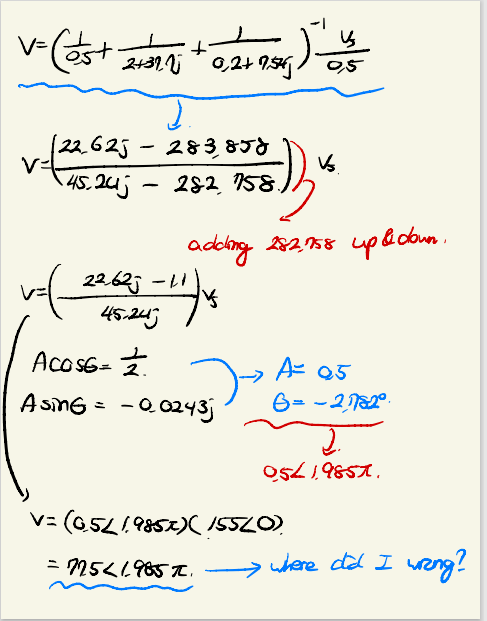 V = (1/0.5 + 1/2+37.7j + 1/0.2+7.54j)^-1 Vs/0.5
V = (22.62j - 283.858 / 45.24j - 282.758) Vs
adding 282.758 up & down.
V = (22.62j - 1.1 / 45.24j) Vs
Acosθ = 1/2.
A = 0.5
Asinθ = -0.0243j
θ = -2.782°
0.5∠1.985π.
V = (0.5∠1.985π)(155∠0)
= 77.5∠1.985π.
where did I wrong?